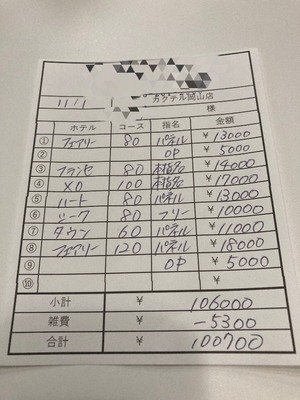 カクテル岡山店
11/1 様
ホテル コース 指名 金額
① フェアリー 80 パネル ¥13000
② OP ¥5000
③ フランセ 80 本指名 ¥14000
④ XO 100 本指名 ¥17000
⑤ ハート 80 パネル ¥13000
⑥ シーク 80 フリー ¥10000
⑦ タウン 60 パネル ¥11000
⑧ フェアリー 120 パネル ¥18000
⑨ OP ¥5000
⑩ ¥
小計 ¥ 106000
雑費 ¥ -5300
合計 ¥ 100700